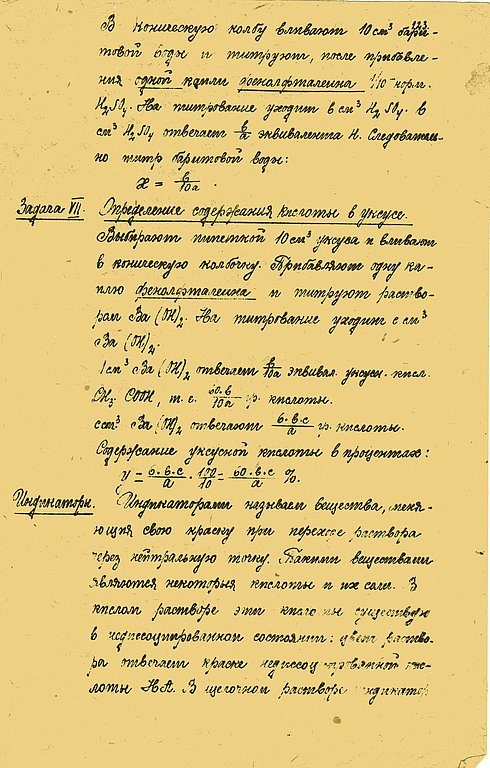 123.
В коническую колбу вливают 10 см³ бари-
товой воды и титруют, после прибавле-
ния одной капли фенолфталеина 1/10 норм.
H₂SO₄. На титрование уходит в см³ H₂SO₄. в
см³ H₂SO₄ отвечает в/a эквивалента H. Следователь-
но титр баритовой воды:
x = в/10a.
Задача VII. Определение содержания кислоты в уксусе.
Выбирают пипеткой 10 см³ уксуса и вливают
в коническую колбочку. Прибавляют одну ка-
плю фенолфталеина и титруют раство-
ром Ba(OH)₂. На титрование уходит с см³
Ba(OH)₂.
1 см³ Ba(OH)₂ отвечает в/10a эквивал. уксусн. кисл.
CH₃COOH, т. е. 60.в/10a гр. кислоты.
с см³ Ba(OH)₂ отвечают 6.в.с/a гр. кислоты.
Содержание уксусной кислоты в процентах:
y = 6.в.с/a · 100/10 = 60.в.с/a %.
Индикаторы. Индикаторами называем вещества, меня-
ющия свою краску при переходе раствора
через нейтральную точку. Такими веществами
являются некоторыя кислоты и их соли. В
кислом растворе эти кислоты существуют
в недиссоциированном состоянии: цвет раство-
ра отвечает краске недиссоциированной кис-
лоты HA. В щелочном растворе индикатор